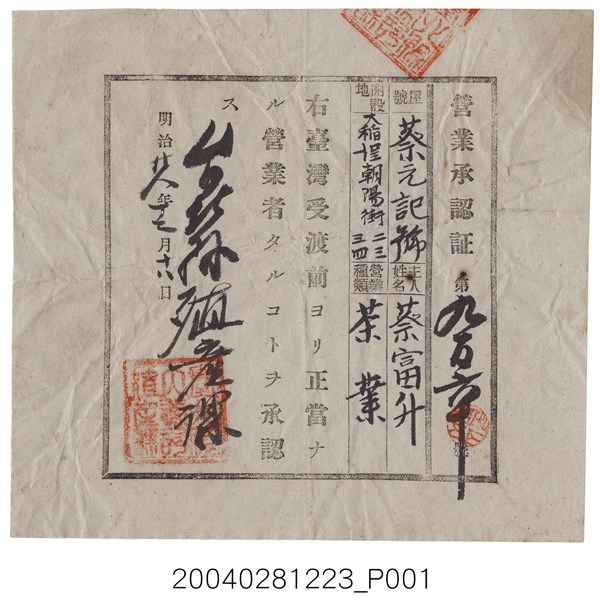 營業承認証 第九百六十號
屋號 蔡元記號 主人姓名 蔡富升
開設地 大稲埕朝陽街 二三三四 營業種類 茶業
右臺灣受渡前ヨリ正當ナ
ル營業者タルコトヲ承認
ス
殖產課
明治廿八年十二月十八日
20040281223_P001